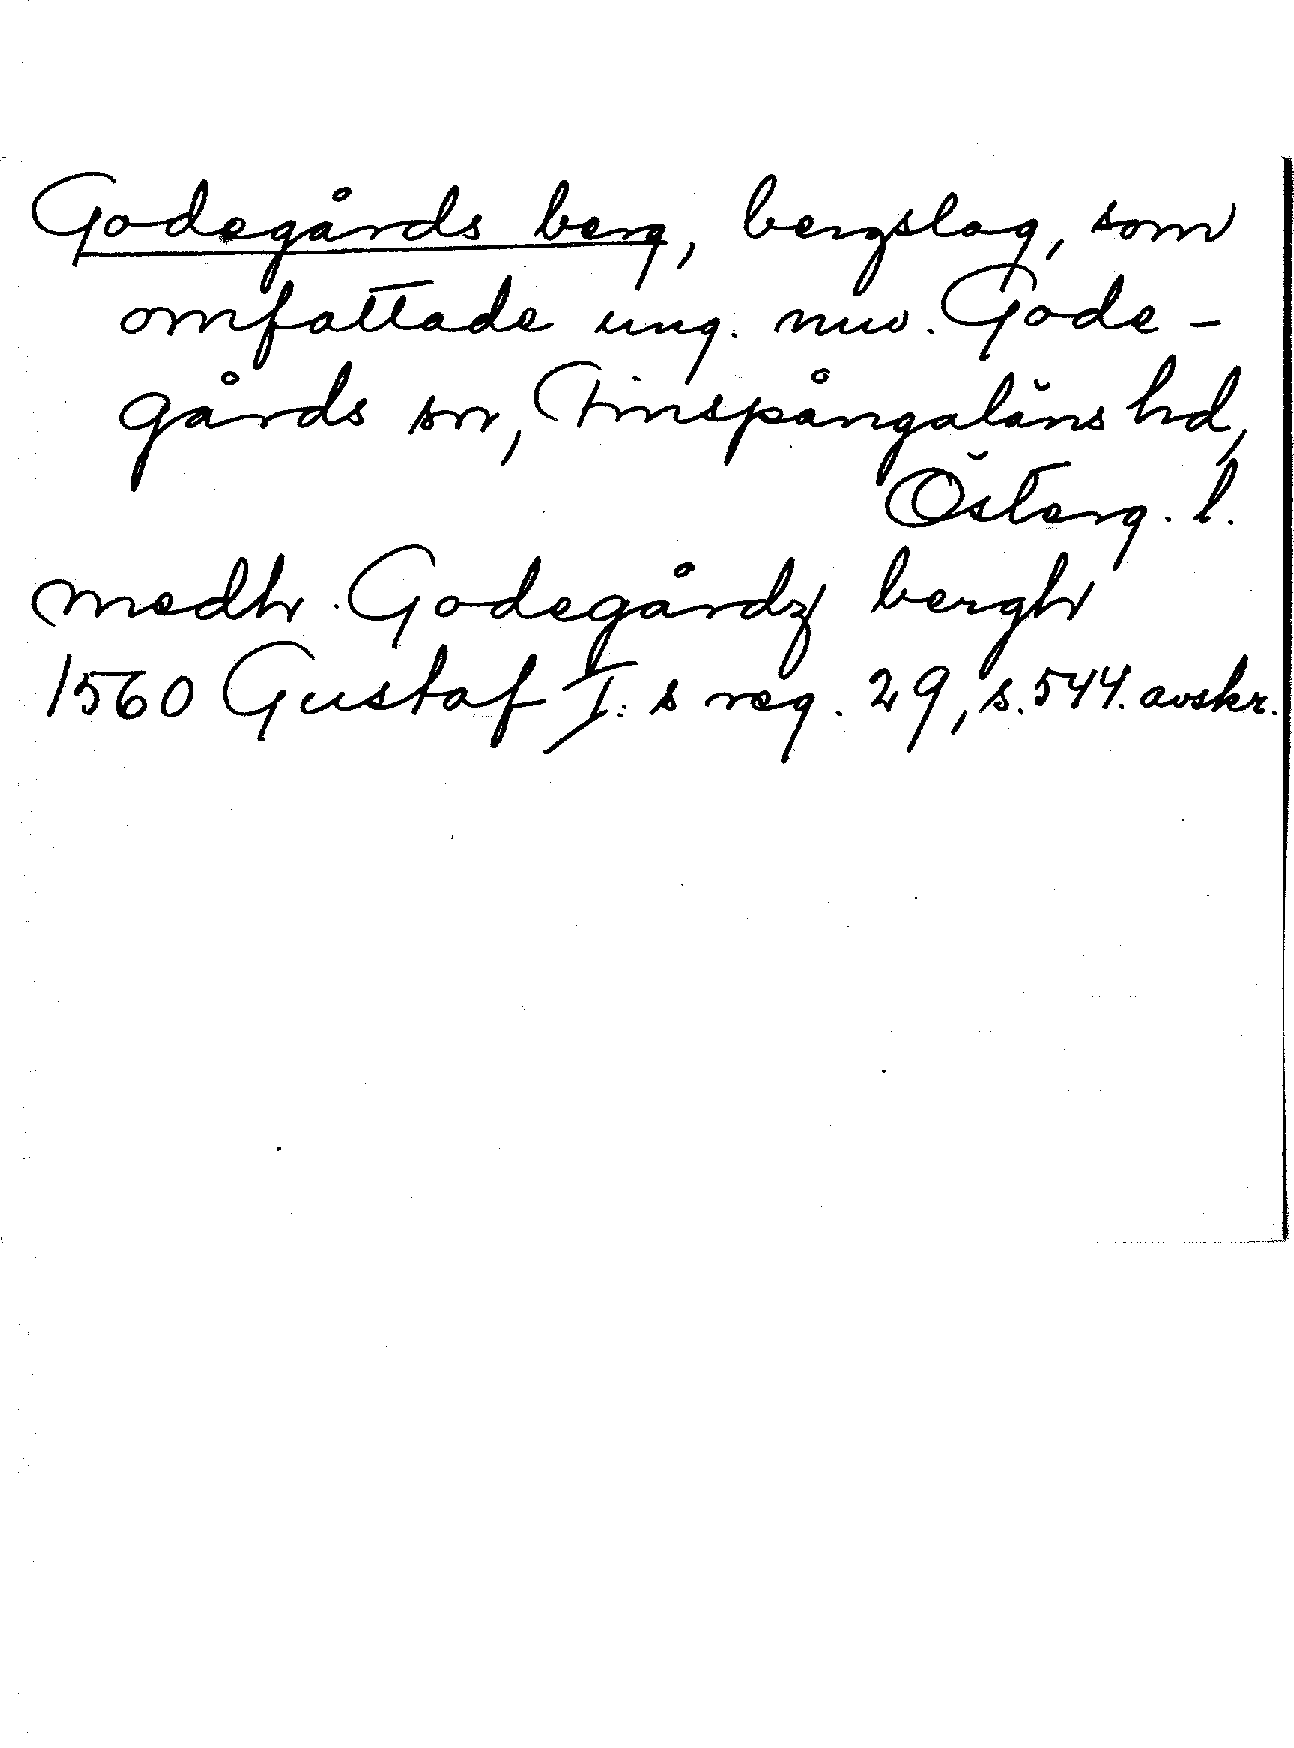 Godegårds berg, bergslag, som
omfattade ung. nuv. Gode-
gårds sn, Finspångaläns hd,
Österg. l.
medh Godegårdz bergh
1560 Gustaf I:s reg. 29, s. 544. avskr.